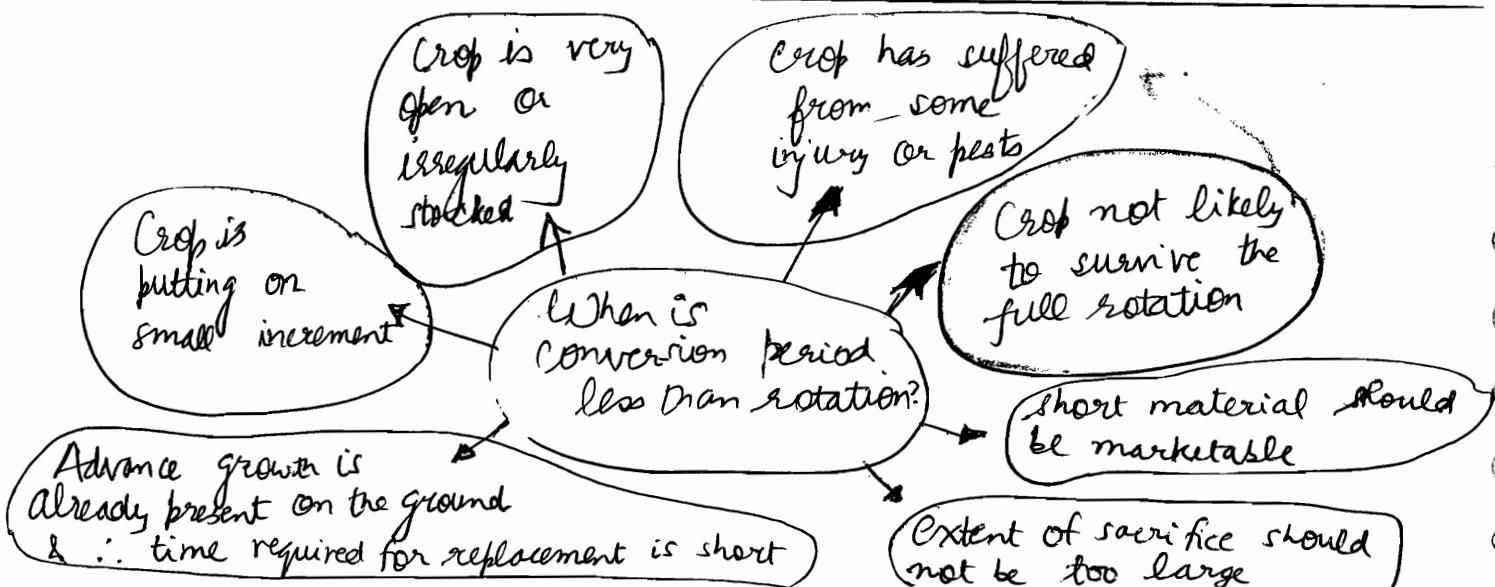 Crop is very
open or
irregularly
stocked
Crop has suffered
from some
injury or pests
Crop not likely
to survive the
full rotation
Crop is
putting on
small increment
When is
conversion period
less than rotation?
short material should
be marketable
Advance growth is
already present on the ground
& ∴ time required for replacement is short
extent of sacrifice should
not be too large